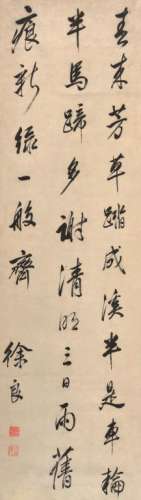 春来芳草踏成溪半是車輪
半馬蹄多謝清明三日雨舊
痕新綠一般齊
徐良